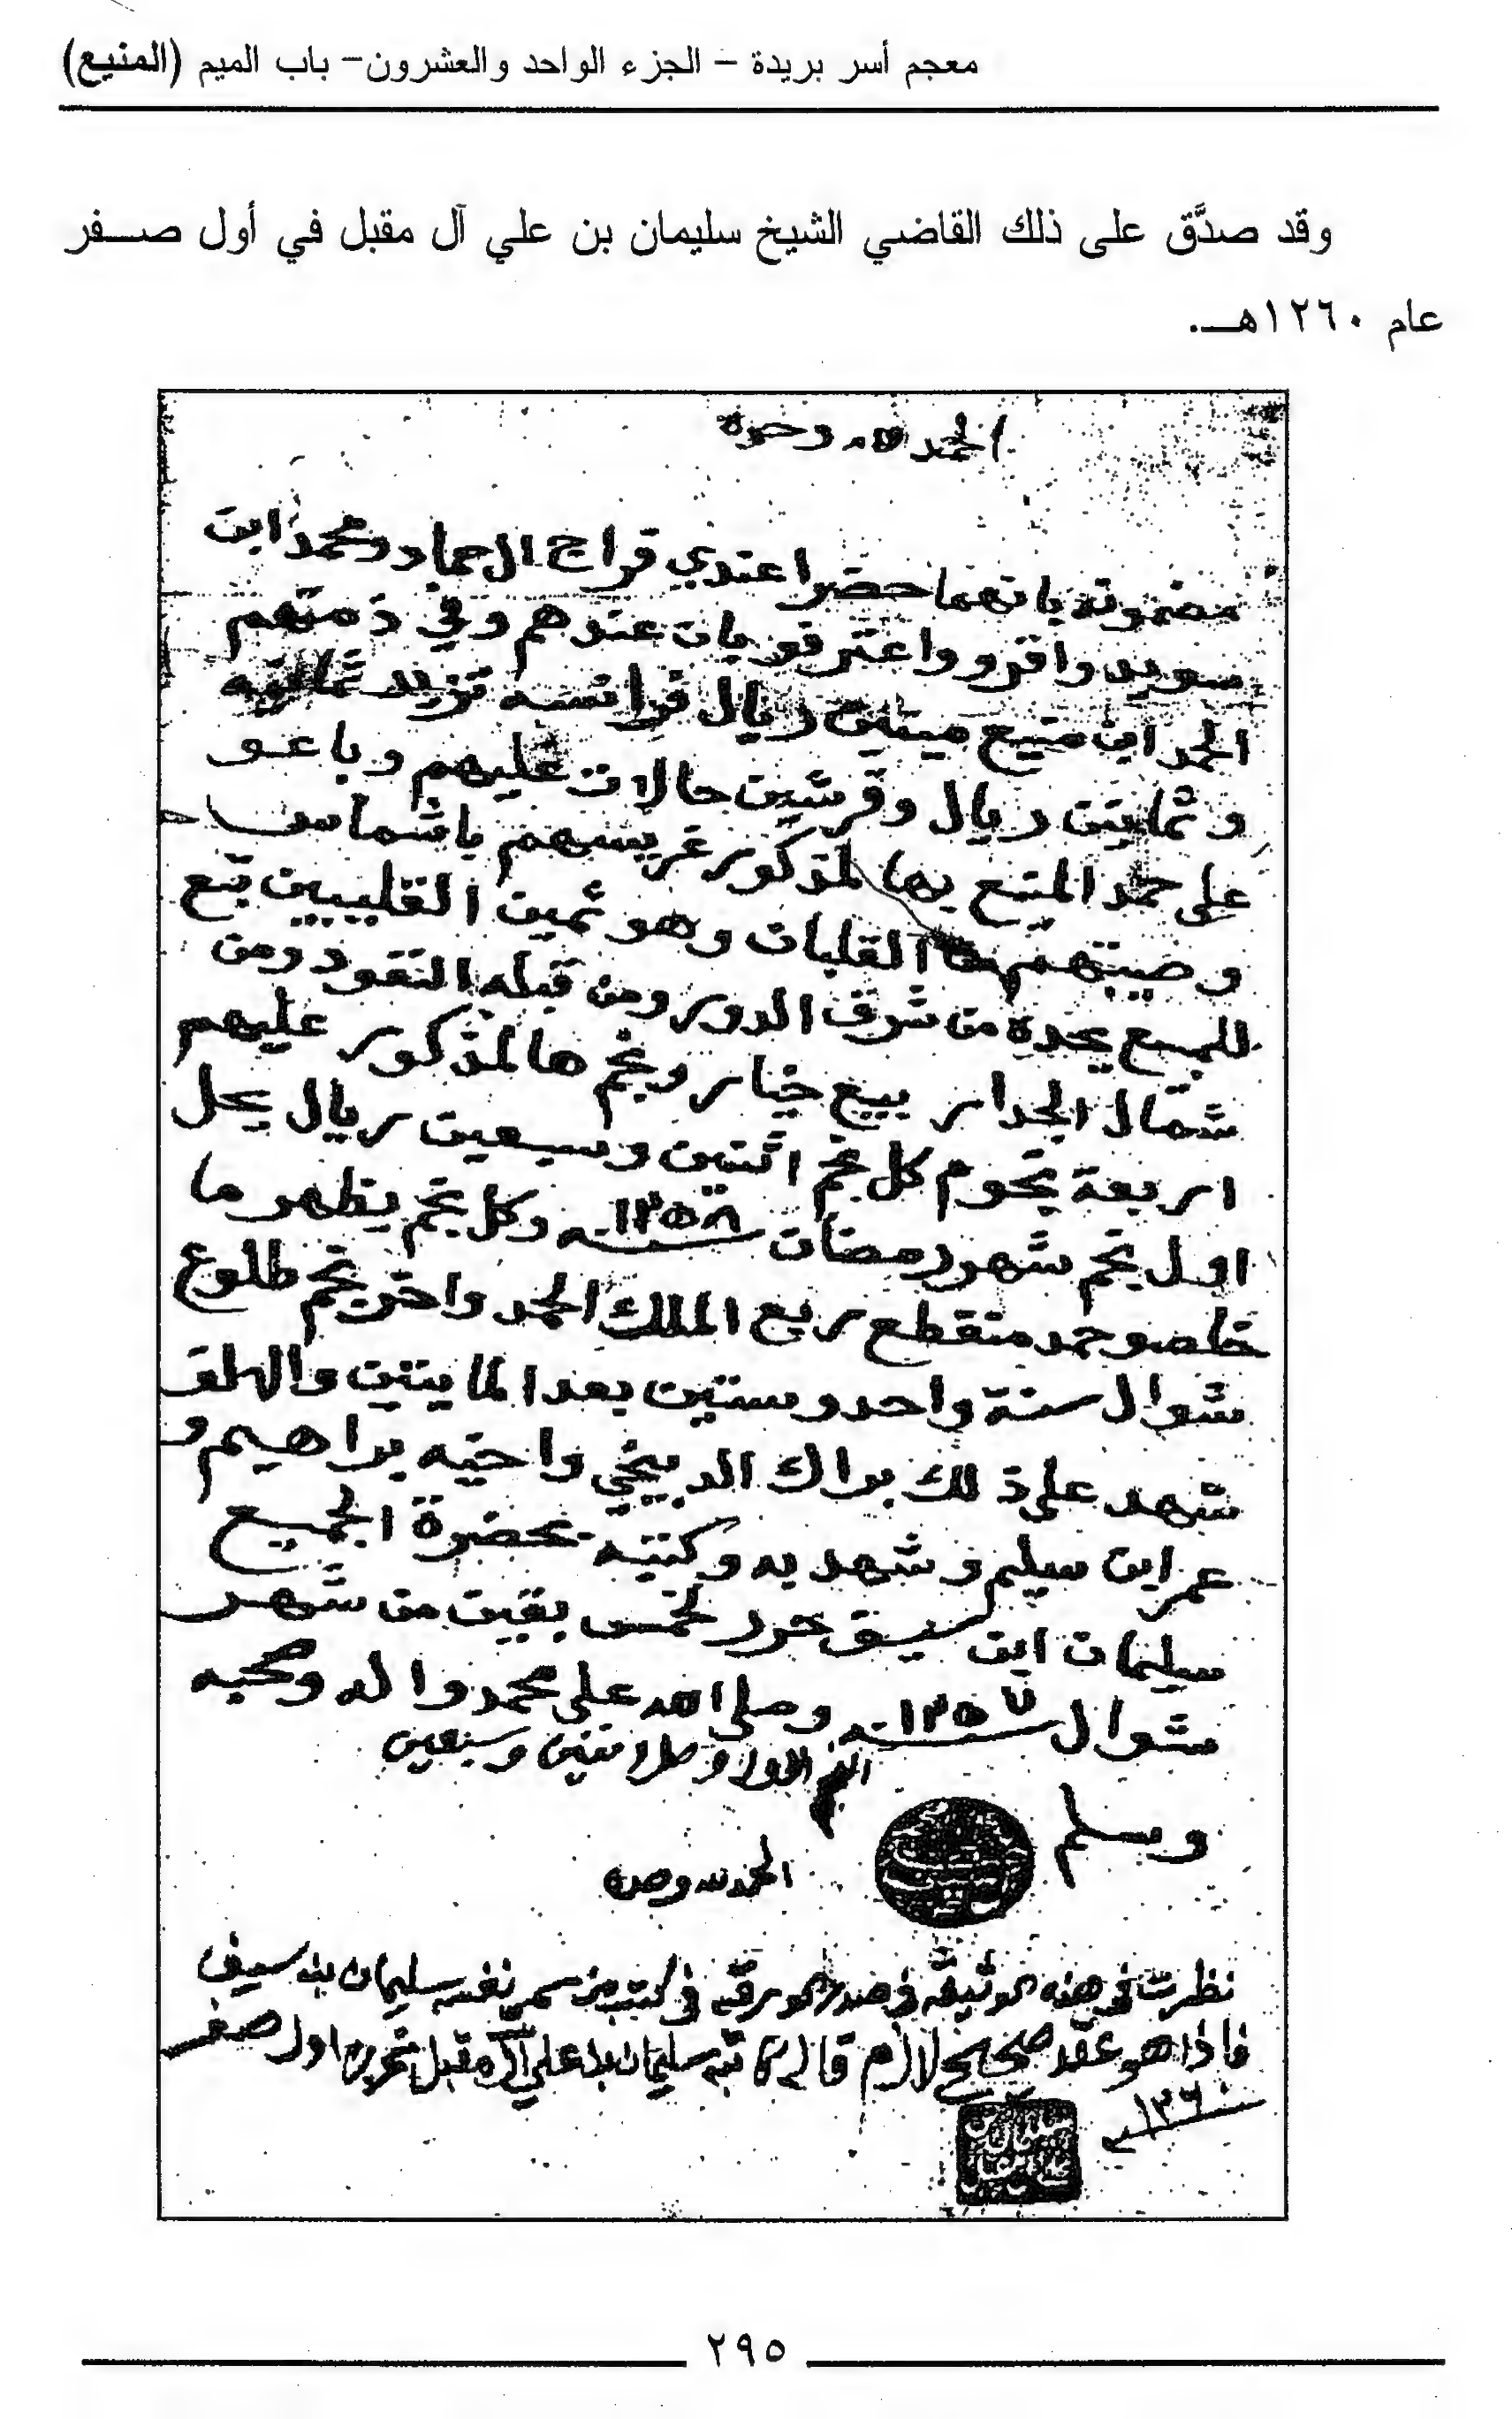 معجم أسر بريدة – الجزء الواحد والعشرون– باب الميم (المنيع)
وقد صدَّق على ذلك القاضي الشيخ سليمان بن علي آل مقبل في أول صـــفر
عام ١٢٦٠هــ.
الحمد لله وحده
مضمونه بانهما حضرا عندي قراج الحماد ومحمد ابن
سويد واقرو واعترفو بان عندهم وفي ذمتهم
الحمد ابن منيع ميتين ريال فرانسه تزيد ثمانيه
وثمانين ريال وقرشين حالات عليهم وباعو
على حمد المنيع بها المذكور غريسهم باشماس
وصيبتهم القلبات وهو ثمين القليبين تبع
للمبيع يحده من شرق الدور ومن قبله النفود ومن
شمال الجدار بيع خيار ونجم ها المذكور عليهم
اربعة نجوم كل نجم اثنين وسبعين ريال يحل
اول نجم شهر رمضان سنة ١٢٥٨ وكل نجم يظهر ما
خلصو حمد منقطع ربع الملك الحمد واخر نجم طلوع
شوال سنة واحد وستين بعد المايتين والالف
شهد على ذلك براك الدبيخي واخيه براهيم و
عمر ابن سيلم وشهد به وكتبه بحضرة الجميع
سليمان ابن سيف حرر لخمس بقين من شهر
شوال سنة ١٢٥٧ وصلى الله على محمد واله وصحبه
النجم الاول وصل اثنين وسبعين
وسلم
الحمد لله وحده
نظرت في هذه الوثيقه في صدر الورقه في كتب من سمى نفسه سليمان بن سيف
فاذا هو عقد صحيح لازم قاله كاتبه سليمان بن علي آل مقبل تحريره اول صفر
١٢٦٠
٢٩٥